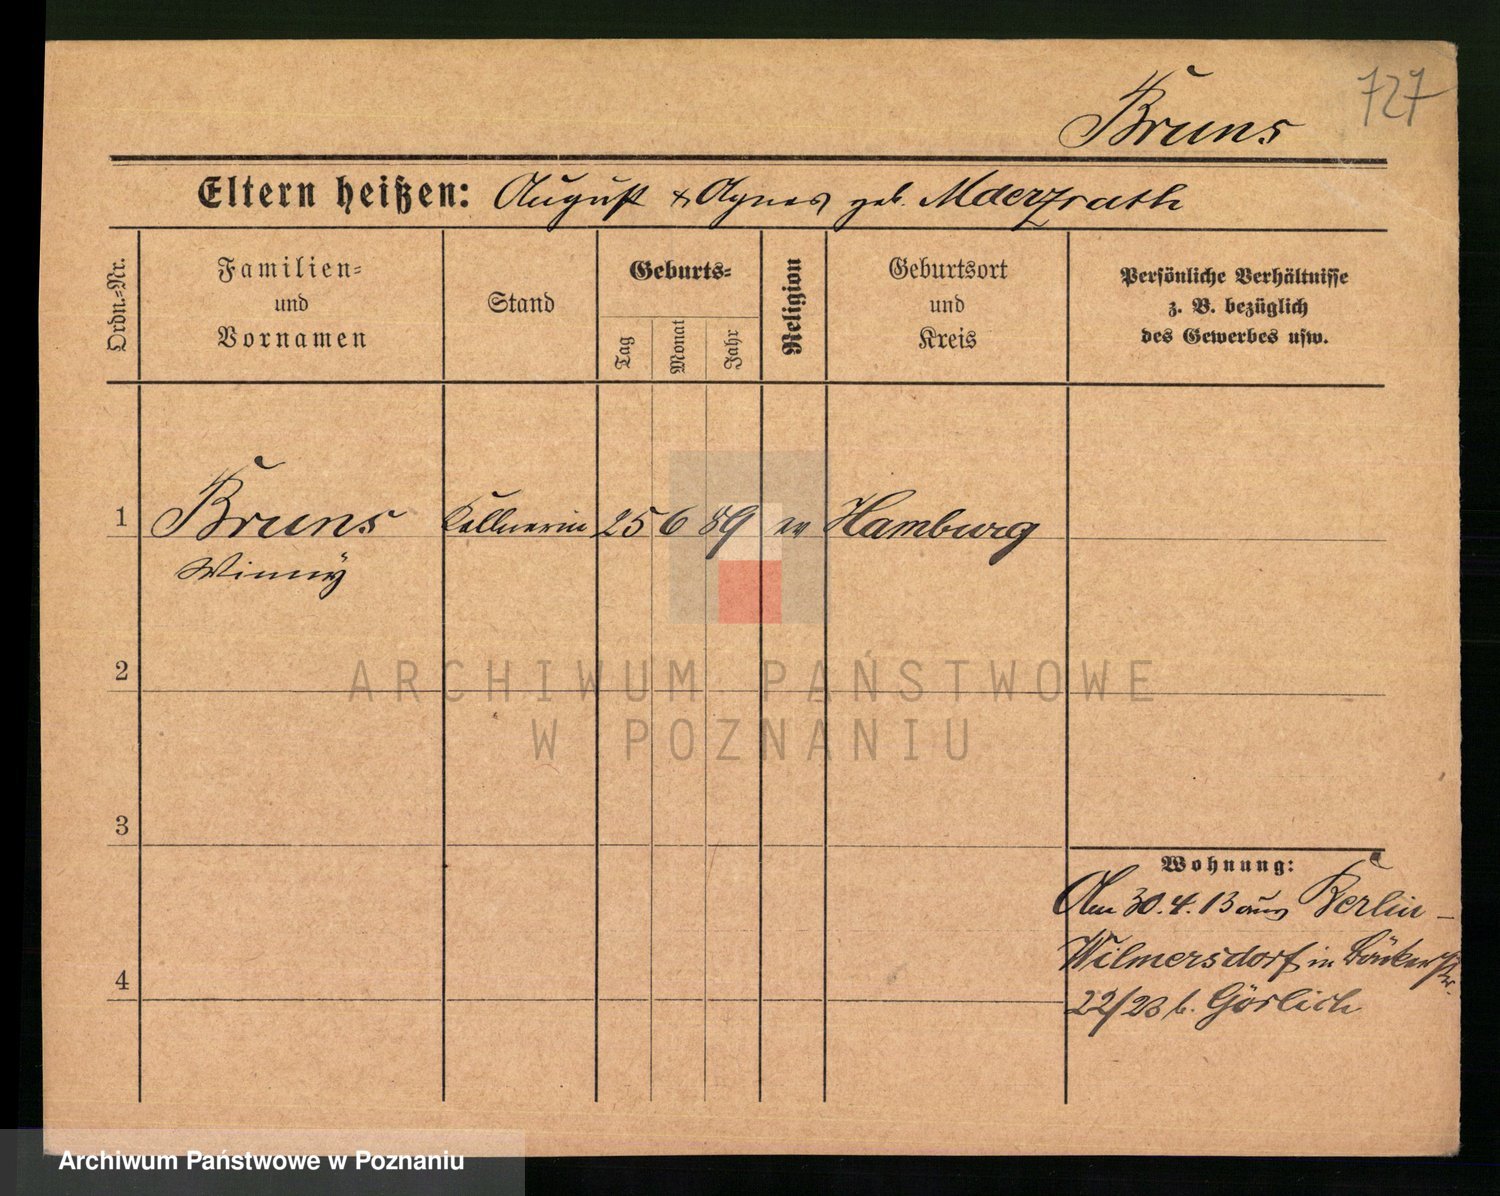 727
Bruns
Eltern heißen: August & Agnes geb. Maerzrath
Ordn.=Nr.
Familien=
und
Vornamen
Stand
Geburts=
Tag
Monat
Jahr
Religion
Geburtsort
und
Kreis
Persönliche Verhältnisse
z. B. bezüglich
des Gewerbes usw.
1 Bruns Kellnerin 25 6 89 ev Hamburg
Winny
2
3
4
Wohnung:
Am 30.4.13 aus Berlin-
Wilmersdorf in
22/23 b. Görlich
ARCHIWUM PAŃSTWOWE
W POZNANIU
Archiwum Państwowe w Poznaniu